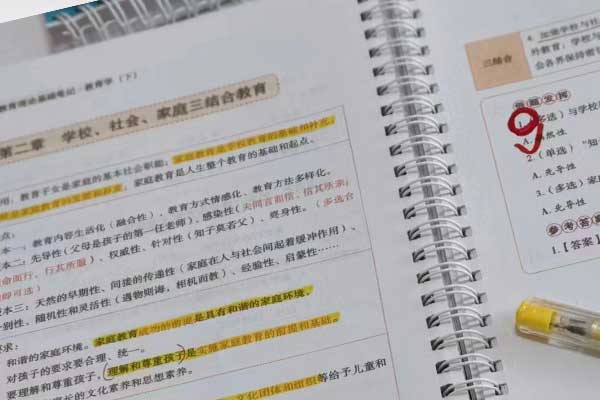 教育理论基础笔记·教育学（下）
第二章 学校、社会、家庭三结合教育
用：教育子女是家庭的基本社会职能；家庭教育是学校教育的基础和补充，
家庭教育是人生整个教育的基础和起点。
点：
本一：教育内容生活化（融合性）、教育方式情感化、教育方法多样化。
本二：先导性（父母是孩子的第一任老师）、感染性
命而行，行其所服）、权威性、针对性（知子莫若父）、终身性。（多选合
即可选）
本三：天然的早期性、间接的传递性（家庭在人与社会间起着缓冲作用）、
别性、随机性和灵活性（遇物则诲，相机而教）、经验性、启蒙性……
要求：
和谐的家庭环境。家庭教育成功的前提是具有和谐的家庭环境。
对孩子的要求要合理、统一。
要理解和尊重孩子。理解和尊重孩子是实施家庭教育的前提和基础。
家长的文化素养和思想素养。
文化团体和组织等给予儿童和
三结合
4. 加强学校与社
外教育；学校与
会各界保持密切
1.（多选）与学校
A.
2.（单选）“知
A. 先导性
3.（多选）家庭
A. 先导性
参考答案
1.【答案】